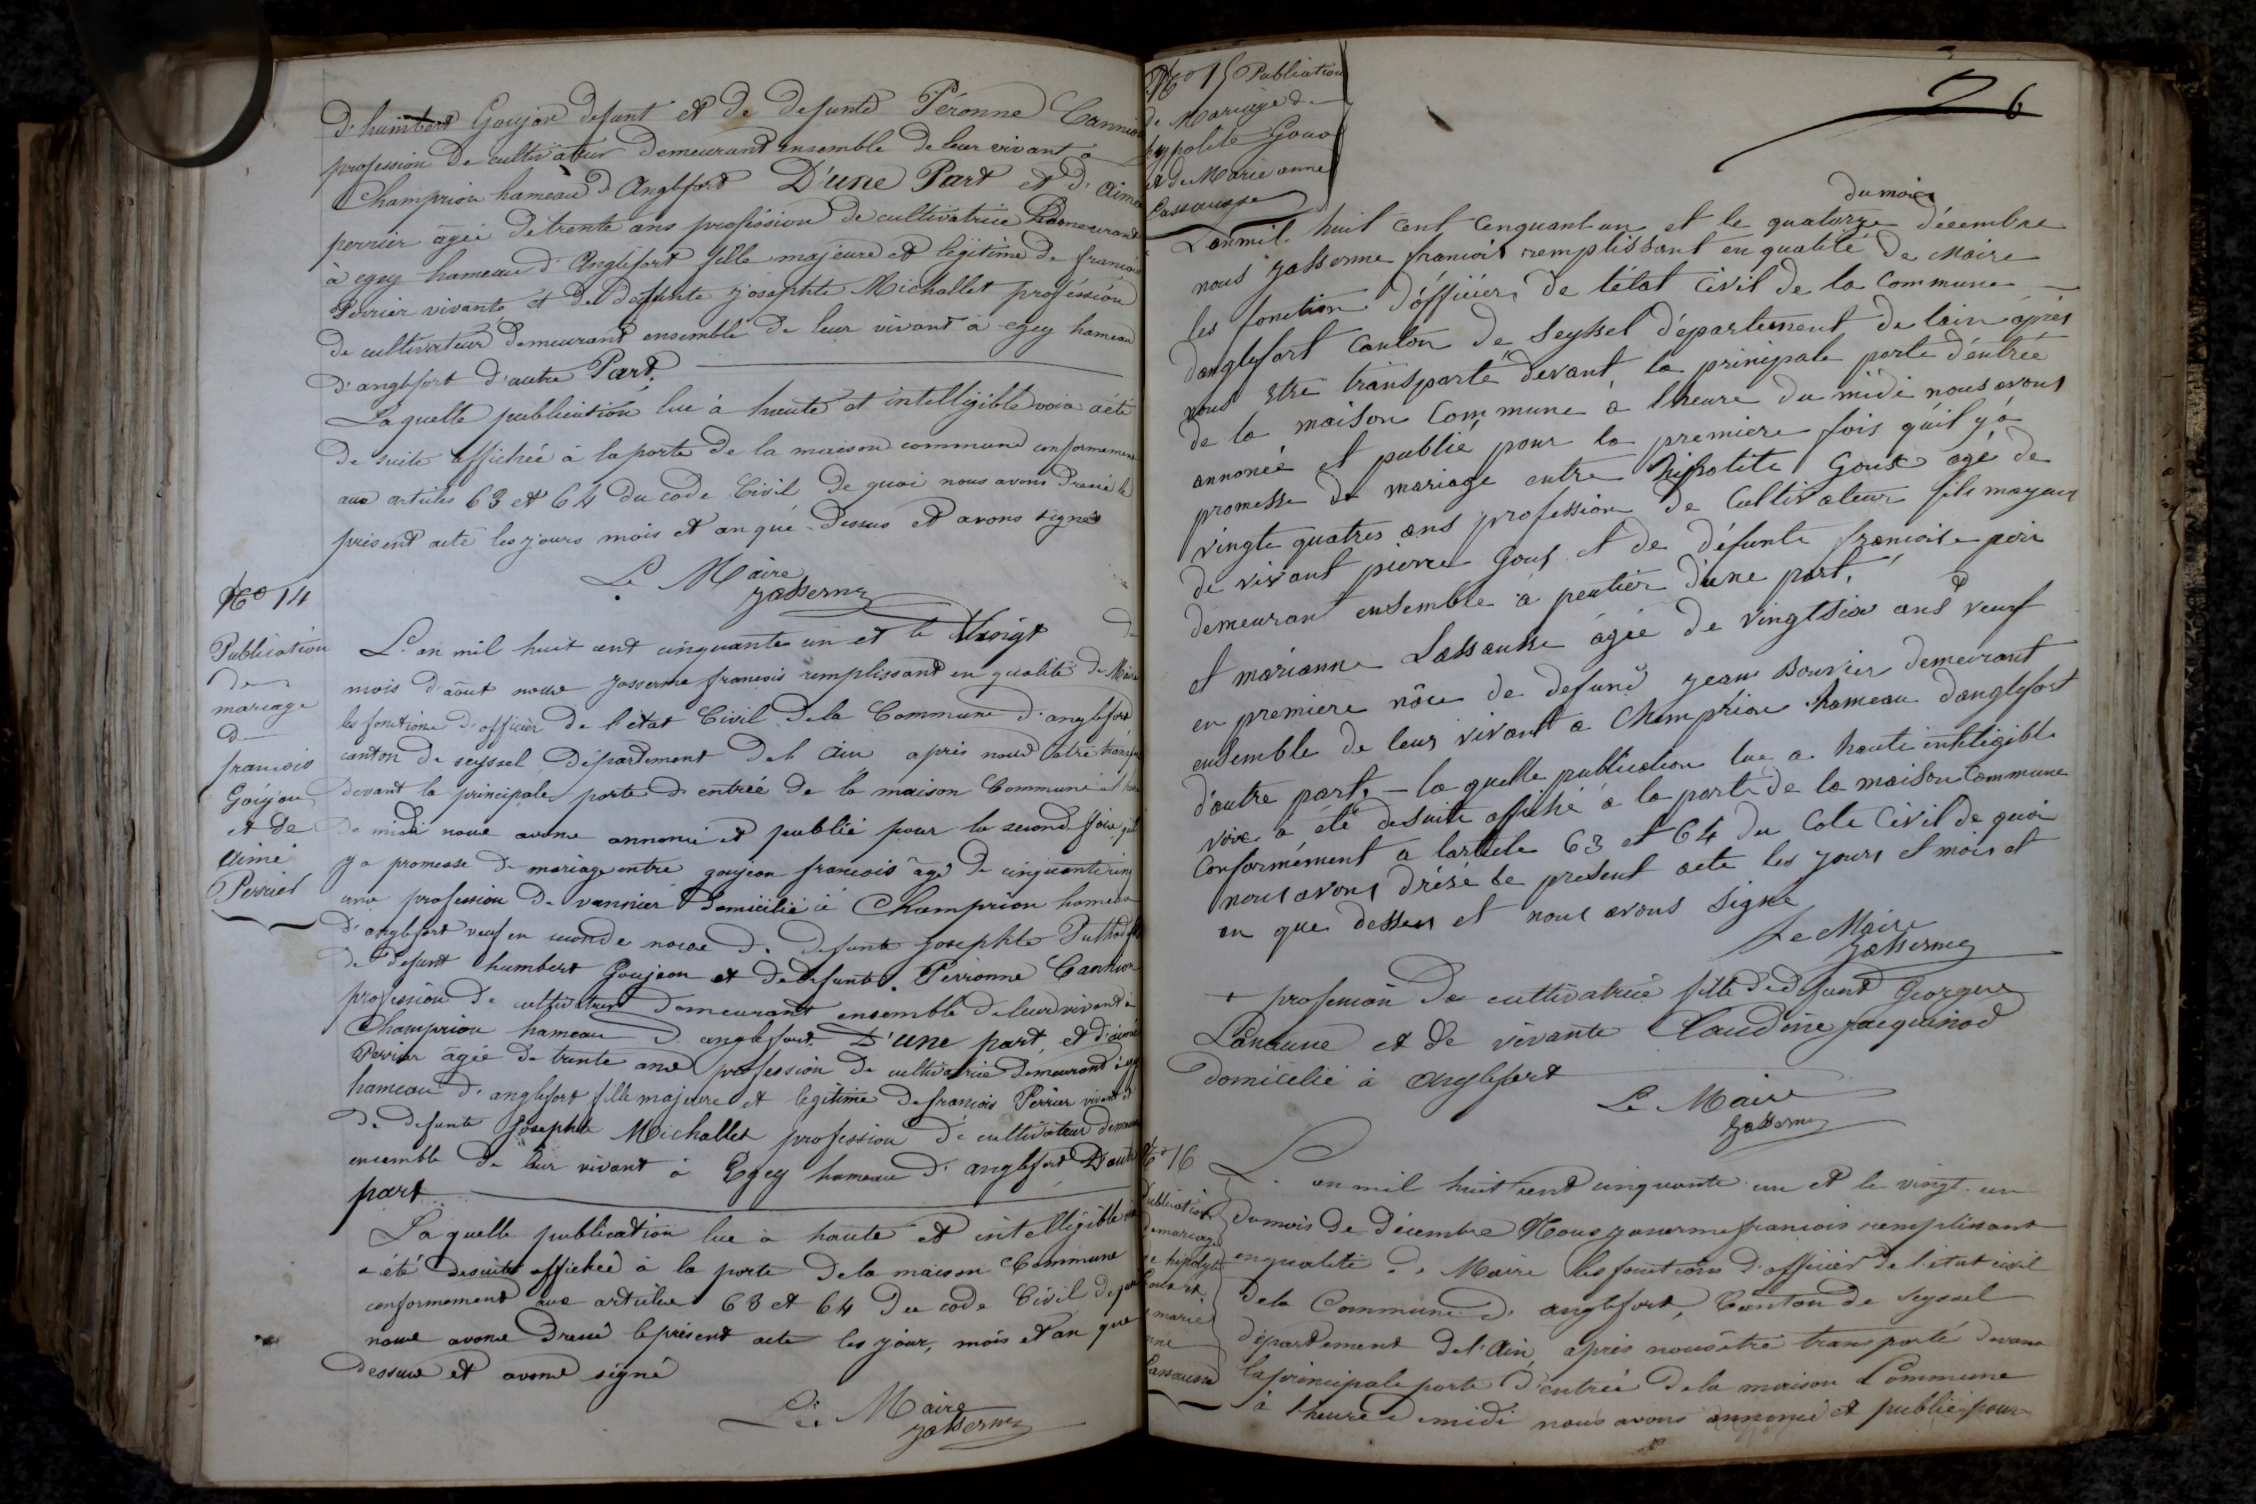 d'humbert Goujon defunt et de defunte Péronne Cannion
profession de cultivateur demeurant ensemble de leur vivant à
Champrion hameau d'Anglefort D'une Part et d'aimée
perrier agée de trente ans profession de cultivatrice demeurant
à egey hameau d'Anglefort fille majeure et légitime de françois
Perrier vivante et de deffunte josephte Michallet profession
de cultivateur demeurant ensemble de leur vivant à egey hameau
d'anglefort d'autre Part.
Laquelle publication lue à haute et intelligible voix a été
de suite affichée à la porte de la maison commune conformement
aux articles 63 et 64 du code Civil de quoi nous avons dressé le
présent acte les jours mois et an que dessus et avons signé
Le Maire
Jasserme
No 14
Publication
de
mariage
d
francois
Goujon
et de
Aimé
Perrier
L'an mil huit cent cinquante un et le Vingt du
mois d'aout nous Jasserme francois remplissant en qualité de Maire
les fonctions d'officier de l'état Civil de la Commune d'anglefort
canton de seyssel département de l'Ain après nous être transporté
devant la principale porte d'entrée de la maison Commune à l'heure
de midi nous avons annoncé et publié pour la second fois qu'il
y a promesse de mariage entre goujeon francois âgé de cinquante cinq
ans profession de vannier domicilié à Champrion hameau
d'anglefort veuf en seconde noces de defunte josephte Puthod fils
de defunt humbert Goujeon et de defunte Perronne Cannion
profession de cultivateur demeurant ensemble de leur vivant à
Champrion hameau d'anglefort. D'une part, et d'aimée
Perrier âgée de trente ans profession de cultivatrice demeurant à egey
hameau d'anglefort fille majeure et légitime de francois Perrier vivant et
de defunte Josephte Michallet profession de cultivateur demeurant
ensemble de leur vivant à Egey hameau d'anglefort D'autre
part
Laquelle publication lue à haute et intelligible voix
a été desuite affichée à la porte de la maison Commune
conformement aux articles 63 et 64 du code Civil de quoi
nous avons dressé le présent acte les jour, mois et an que
dessus et avons signé
Le Maire
Jasserme
26
No 15 Publication
de Mariage de
hyppolite Goux
et de Marie anne
Lassausse
du mois
L'an mil huit cent cenquant un et le quatorze décembre
nous Jasserme francois remplissant en qualité de Maire
les fonction d'officier de l'état civil de la commune
danglefort canton de Seyssel département de lain après
nous etre transporté devant la principale porte d'entrée
de la maison Commune à lheure du midi nous avons
annoncé et publié pour la premiere fois qu'il y a
promesse de mariage entre hipolite Goux agé de
vingte quatres ans profession de Cultivateur fils mageur
de vivant pierre Goux et de défunte francoise peire
demeurant ensemble à peutier d'une part,
et marianne Lassausse agée de vingtsix ans + veuf
en premiere nôce de defunt jean Bouvier demeurant
ensemble de leur vivant a Champrion hameau danglefort
d'autre part, – la quelle publication lue a haute inteligible
voix a été desuite affiché à la porte de la maison Commune
Conformément à larticle 63 et 64 du Cote Civil de quoi
nous avons dréssé le present acte les jours et mois et
an que dessus et nous avons signé
Le Maire
Jasserme
+ profession de cultivatrice fille de defunt Georges
Lasausse et de vivante Claudine Jacquinod
domicilié à Anglefort
Le Maire
Jasserme
No 16
Publication
de mariage
de hipolyte
Goux et
de marie
anne
Lassausse
L'an mil huit cent cinquante un et le vingt un
du mois de Décembre Nous jasserme francois remplissant
en qualité de Maire les fonctions d'officier de l'état civil
de la Commune d'anglefort, Canton de Seyssel
département de l'Ain, après nous être transporté devant
la principale porte d'entrée de la maison Commune
à l'heure de midi nous avons annoncé et publié pour